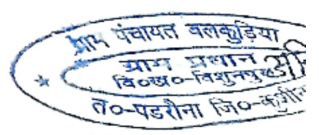 ग्राम पंचायत बलकुड़िया
ग्राम प्रधान
वि०ख०-विशुनपुरा
त०-पडरौना जि०-कुशीन